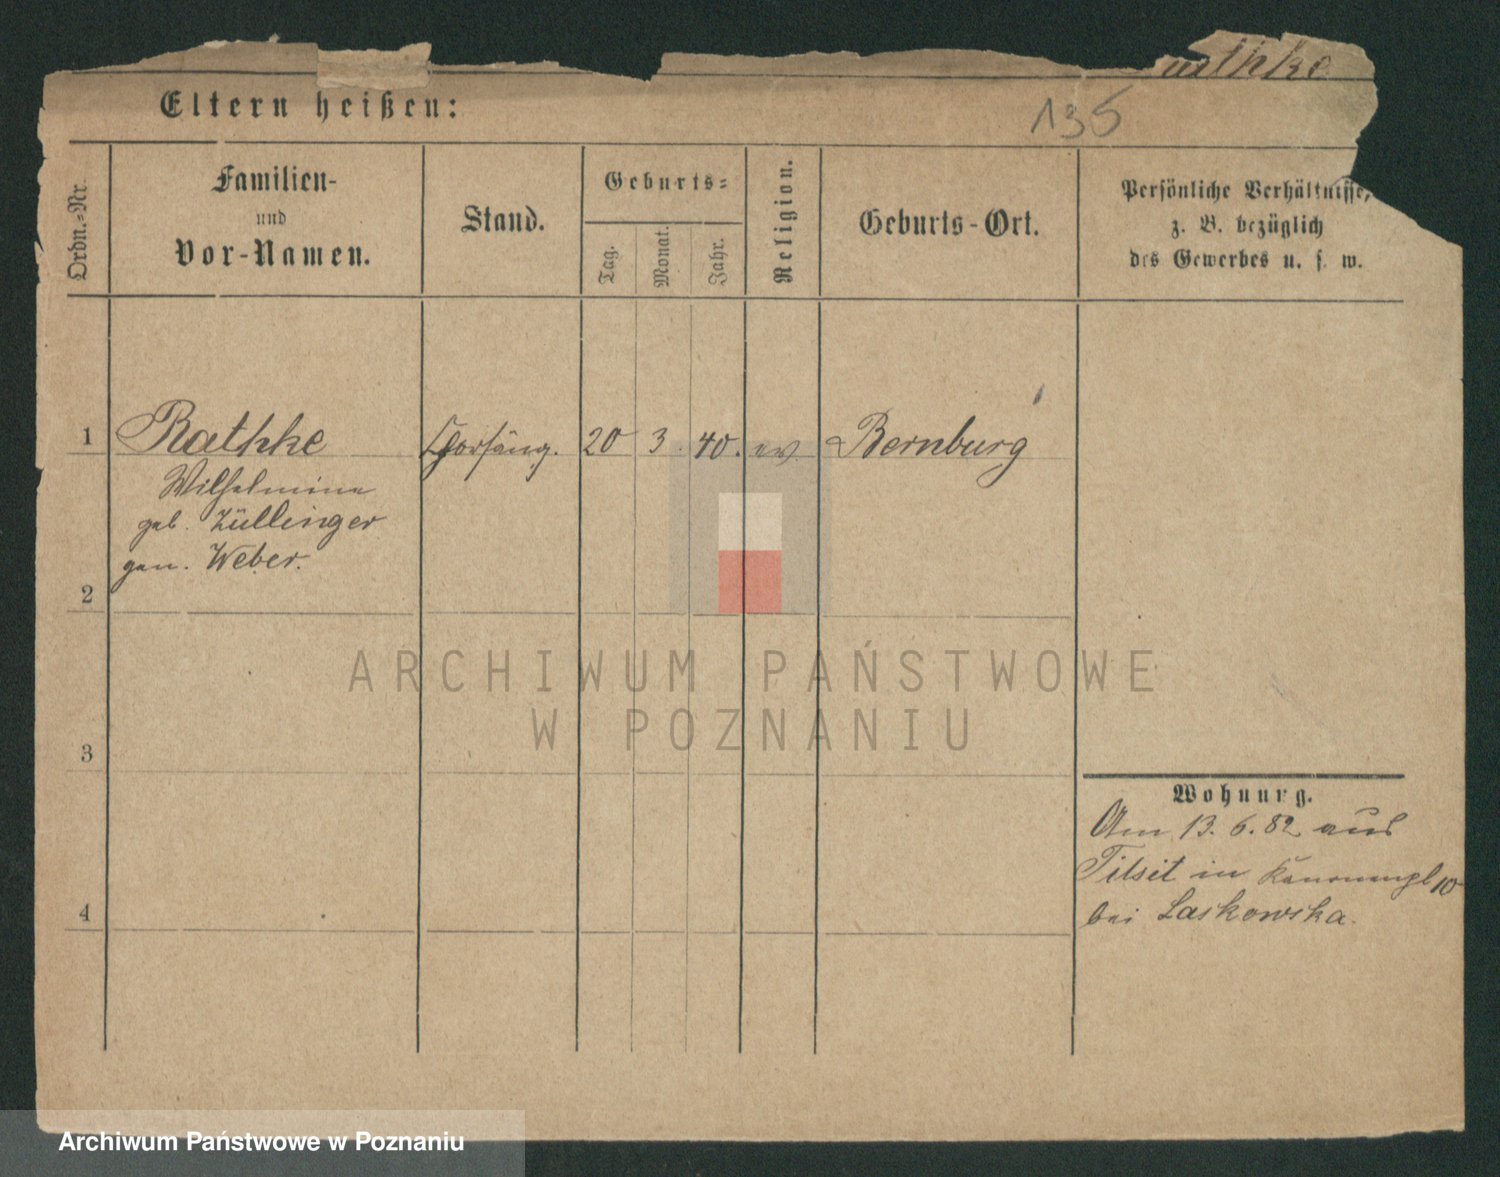 Rathke
135
Eltern heißen:
Ordn.=Nr.
Familien-
und
Vor-Namen.
Stand.
Geburts=
Tag.
Monat.
Jahr.
Religion.
Geburts-Ort.
Persönliche Verhältnisse,
z. B. bezüglich
des Gewerbes u. s. w.
1 Rathke Chorsäng. 20 3. 40. ev. Bernburg
Wilhelmine
geb. Züllinger
gen. Weber.
2
3
4
Wohnung.
Am 13. 6. 82 aus
Tilsit in Kanonenpl 10
bei Laskowska.
ARCHIWUM PAŃSTWOWE
W POZNANIU
Archiwum Państwowe w Poznaniu